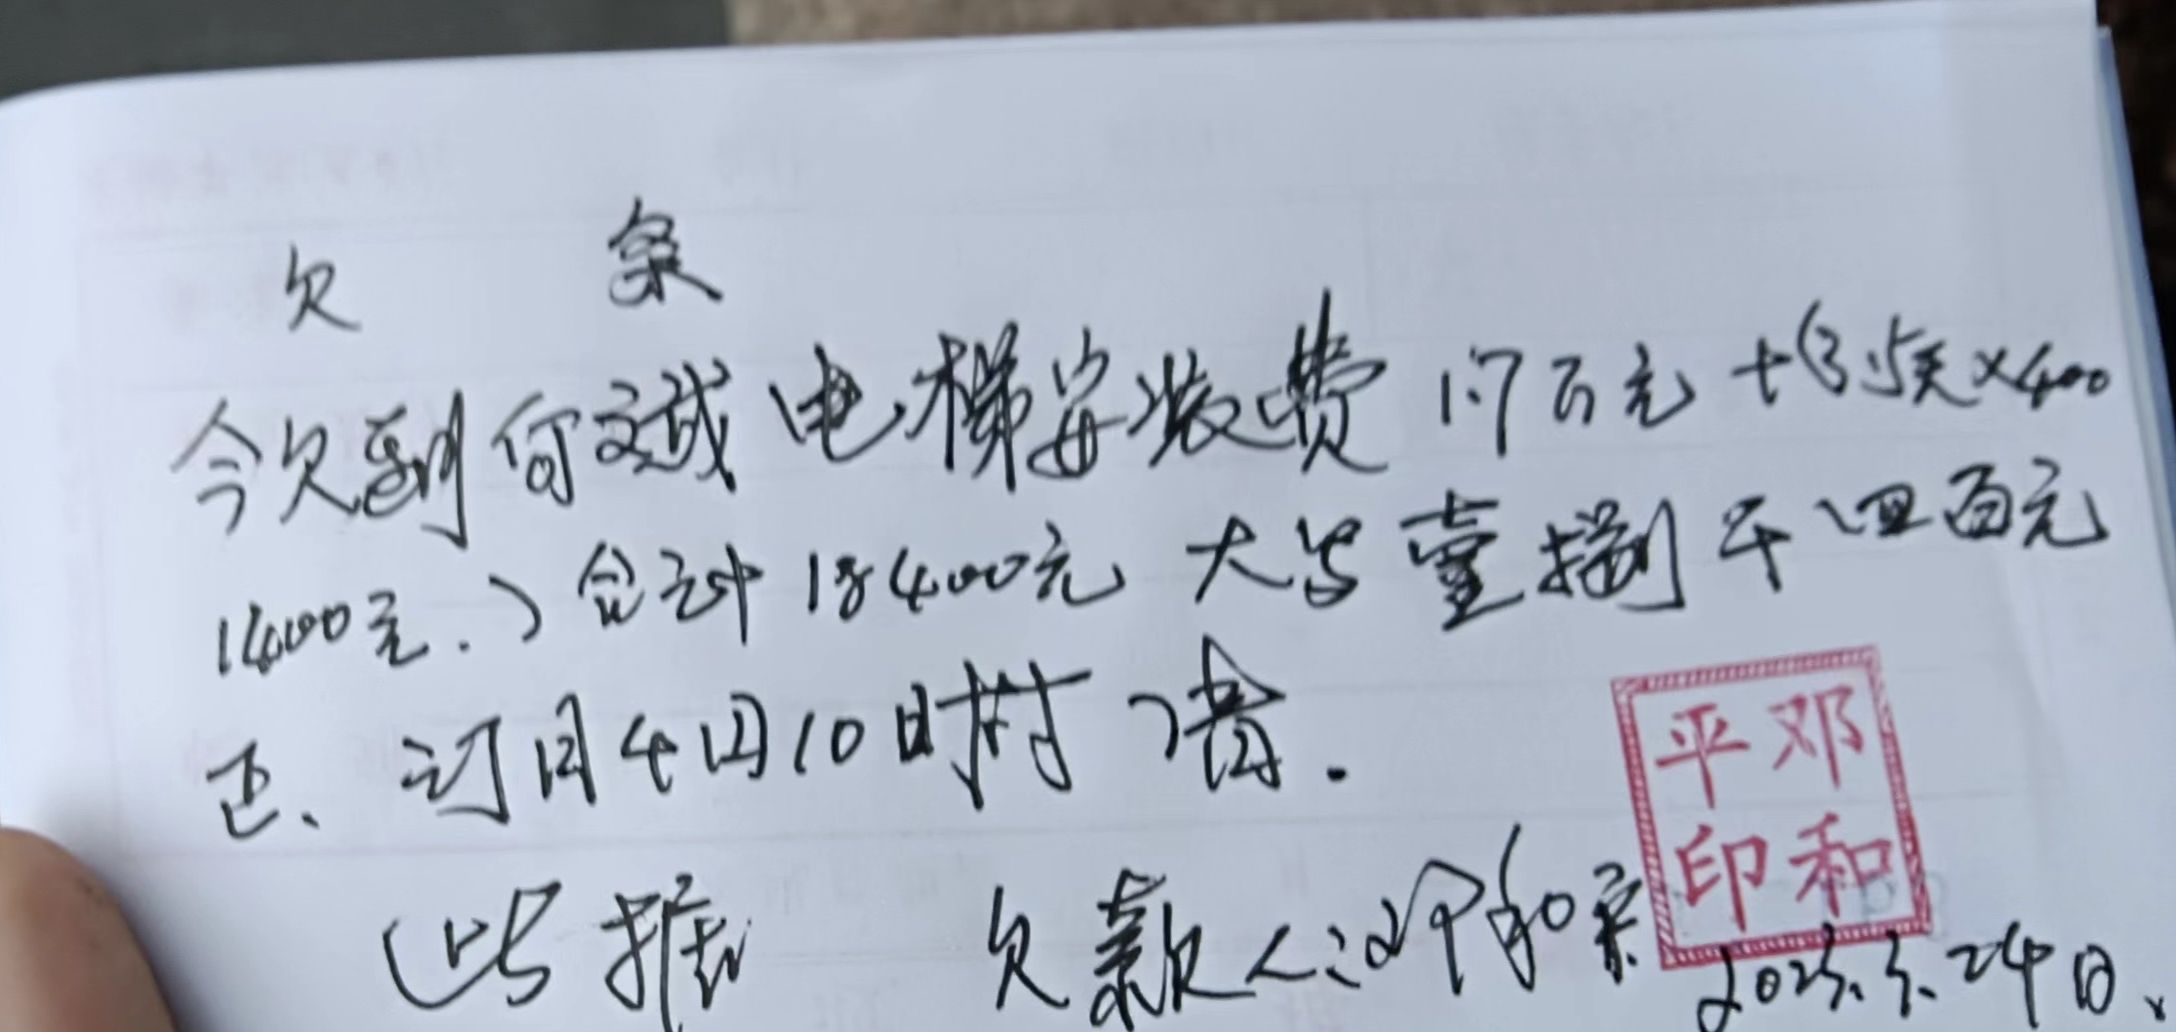 欠 条
今欠到何斌电梯安装费1.7万元+(3.5天×400
1400元.)合计18400元 大写壹捌千四百元
正、订目4月10日时付清.
此据 欠款人:邓和平
邓和平印
2025.3.24日、